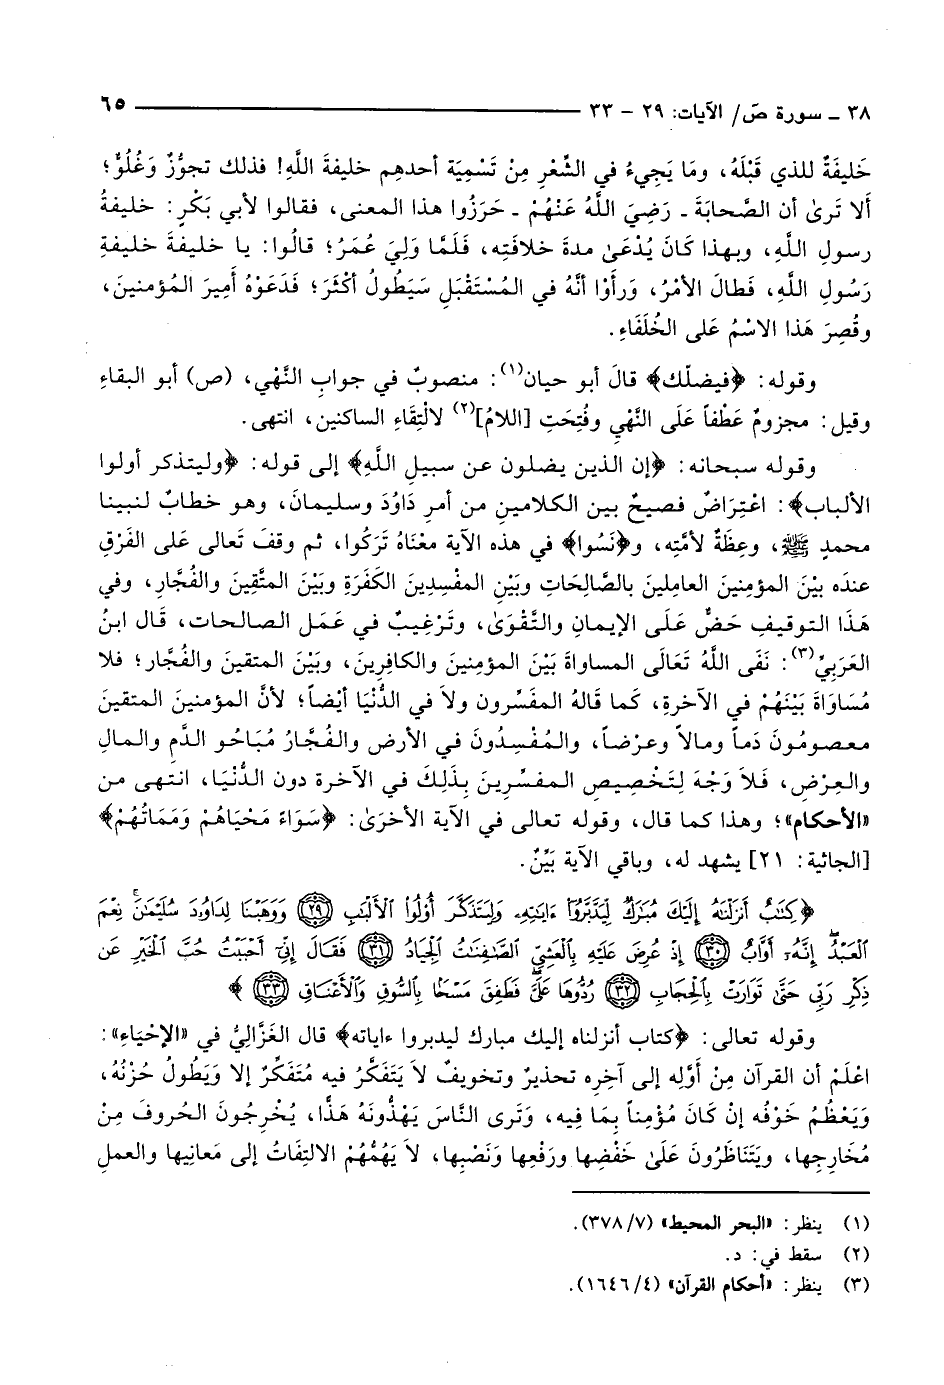 ٣٨ ـ سورة صۤ/ الآيات: ٢٩ – ٣٣ ٦٥
خَليفَةٌ للذي قَبْلَهُ، ومَا يَجِيءُ في الشِّعْرِ مِنْ تَسْمِيَة أحدهِم خليفةَ اللَّهِ! فذلك تجوُّزٌ وَغُلُوٌّ؛
أَلا تَرىٰ أن الصَّحابَةَ ـ رَضِيَ اللَّهُ عَنْهُمْ ـ حَرَزُوا هذا المعنى، فقالوا لأبي بَكْرٍ: خليفةُ
رسولِ اللَّهِ، وبهذا كَانَ يُدْعَىٰ مدةَ خلافَتِه، فَلَمَّا وَلِيَ عُمَرُ؛ قالُوا: يا خليفةَ خليفةِ
رَسُولِ اللَّهِ، فَطالَ الأمْرُ، وَرأَوْا أنَّهُ في المُسْتَقْبَلِ سَيَطُولُ أكْثَرَ؛ فَدَعَوْهُ أمِيرَ المُؤمنينَ،
وقُصِرَ هَذا الاسْمُ عَلى الخُلَفَاءِ.
وقوله: ﴿فيضلّك﴾ قالَ أبو حيان(١): منصوبٌ في جوابِ النَّهْيِ، (ص) أبو البقاءِ
وقيل: مجزومٌ عَطْفاً عَلَى النَّهْيِ وفُتِحَتِ [اللامُ](٢) لالْتِقَاءِ الساكنين، انتهى.
وقوله سبحانه: ﴿إن الذين يضلون عن سبيل اللَّهِ﴾ إلى قوله: ﴿وليتذكر أولوا
الألباب﴾: اعْتِرَاضٌ فصيحٌ بين الكلامينِ من أمرِ دَاوُدَ وسليمانَ، وهو خطابٌ لنبينا
محمدٍ ﷺ، وعِظَةٌ لأمَّتِه، و﴿نَسُوا﴾ في هذه الآية معْنَاهُ تَرَكُوا، ثم وقفَ تَعالى عَلى الفَرْقِ
عندَه بيْنَ المؤمنينَ العاملينَ بالصَّالِحَاتِ وبَيْنِ المفْسِدِينَ الكَفَرَةِ وبَيْنَ المتَّقِينَ والفُجَّارِ، وفي
هَذَا التوقيفِ حَضٌّ عَلَى الإيمانِ والتَّقْوَىٰ، وتَرْغِيبٌ في عَمَلِ الصالحات، قَال ابنُ
العَرَبِيِّ(٣): نَفَى اللَّهُ تَعَالَى المساواةَ بَيْنَ المؤمِنِينَ والكافِرِينَ، وبَيْنَ المتقينَ والفُجَّارِ؛ فلا
مُسَاوَاةَ بَيْنَهُمْ في الآخرةِ، كَما قالهُ المفَسِّرون ولاَ في الدُّنْيَا أيْضاً؛ لأنَّ المؤمنينَ المتقينَ
معصومُونَ دَماً ومالاً وعرْضاً، والمُفْسِدُونَ في الأرضِ والفُجَّارُ مُبَاحُو الدَّمِ والمالِ
والعِرْضِ، فَلاَ وَجْهَ لِتَخْصِيصِ المفسِّرينَ بِذَلِكَ في الآخرة دون الدُّنْيَا، انتهى من
«الأحكام»؛ وهذا كما قال، وقوله تعالى في الآية الأخرَىٰ: ﴿سَوَاءً مَحْيَاهُمْ وَمَمَاتُهُمْ﴾
[الجاثية: ٢١] يشهد له، وباقي الآية بَيِّنٌ.
﴿كِتَٰبٌ أَنزَلْنَٰهُ إِلَيْكَ مُبَٰرَكٌ لِّيَدَّبَّرُوٓا۟ ءَايَٰتِهِۦ وَلِيَتَذَكَّرَ أُو۟لُوا۟ ٱلْأَلْبَٰبِ ﴿٢٩﴾ وَوَهَبْنَا لِدَاوُۥدَ سُلَيْمَٰنَ ۚ نِعْمَ
ٱلْعَبْدُ ۖ إِنَّهُۥٓ أَوَّابٌ ﴿٣٠﴾ إِذْ عُرِضَ عَلَيْهِ بِٱلْعَشِىِّ ٱلصَّٰفِنَٰتُ ٱلْجِيَادُ ﴿٣١﴾ فَقَالَ إِنِّىٓ أَحْبَبْتُ حُبَّ ٱلْخَيْرِ عَن
ذِكْرِ رَبِّى حَتَّىٰ تَوَارَتْ بِٱلْحِجَابِ ﴿٣٢﴾ رُدُّوهَا عَلَىَّ ۖ فَطَفِقَ مَسْحًۢا بِٱلسُّوقِ وَٱلْأَعْنَاقِ ﴿٣٣﴾ ﴾
وقوله تعالى: ﴿كتاب أنزلناه إليك مبارك ليدبروا ءاياته﴾ قال الغَزَّاليُّ في «الإحْيَاءِ»:
اعْلَمْ أن القرآن مِنْ أوَّلِه إلى آخِرِه تحذيرٌ وتخويفٌ لاَ يَتَفَكَّرُ فيه مُتَفَكِّرٌ إلا وَيَطُولُ حُزْنُهُ،
وَيَعْظُمُ خَوْفُه إنْ كَانَ مُؤْمِناً بِمَا فِيه، وَتَرى النَّاسَ يَهْذُّونَهُ هَذًّا، يُخْرِجُونَ الحُروفَ مِنْ
مُخَارِجِها، ويَتَنَاظَرُونَ عَلَىٰ خَفْضِها ورَفْعِها وَنَصْبِها، لاَ يَهُمُّهُمْ الالتِفَاتُ إلى مَعانِيها والعملِ
(١) ينظر: «البحر المحيط» (٣٧٨/٧).
(٢) سقط في: د.
(٣) ينظر: «أحكام القرآن» (١٦٤٦/٤).